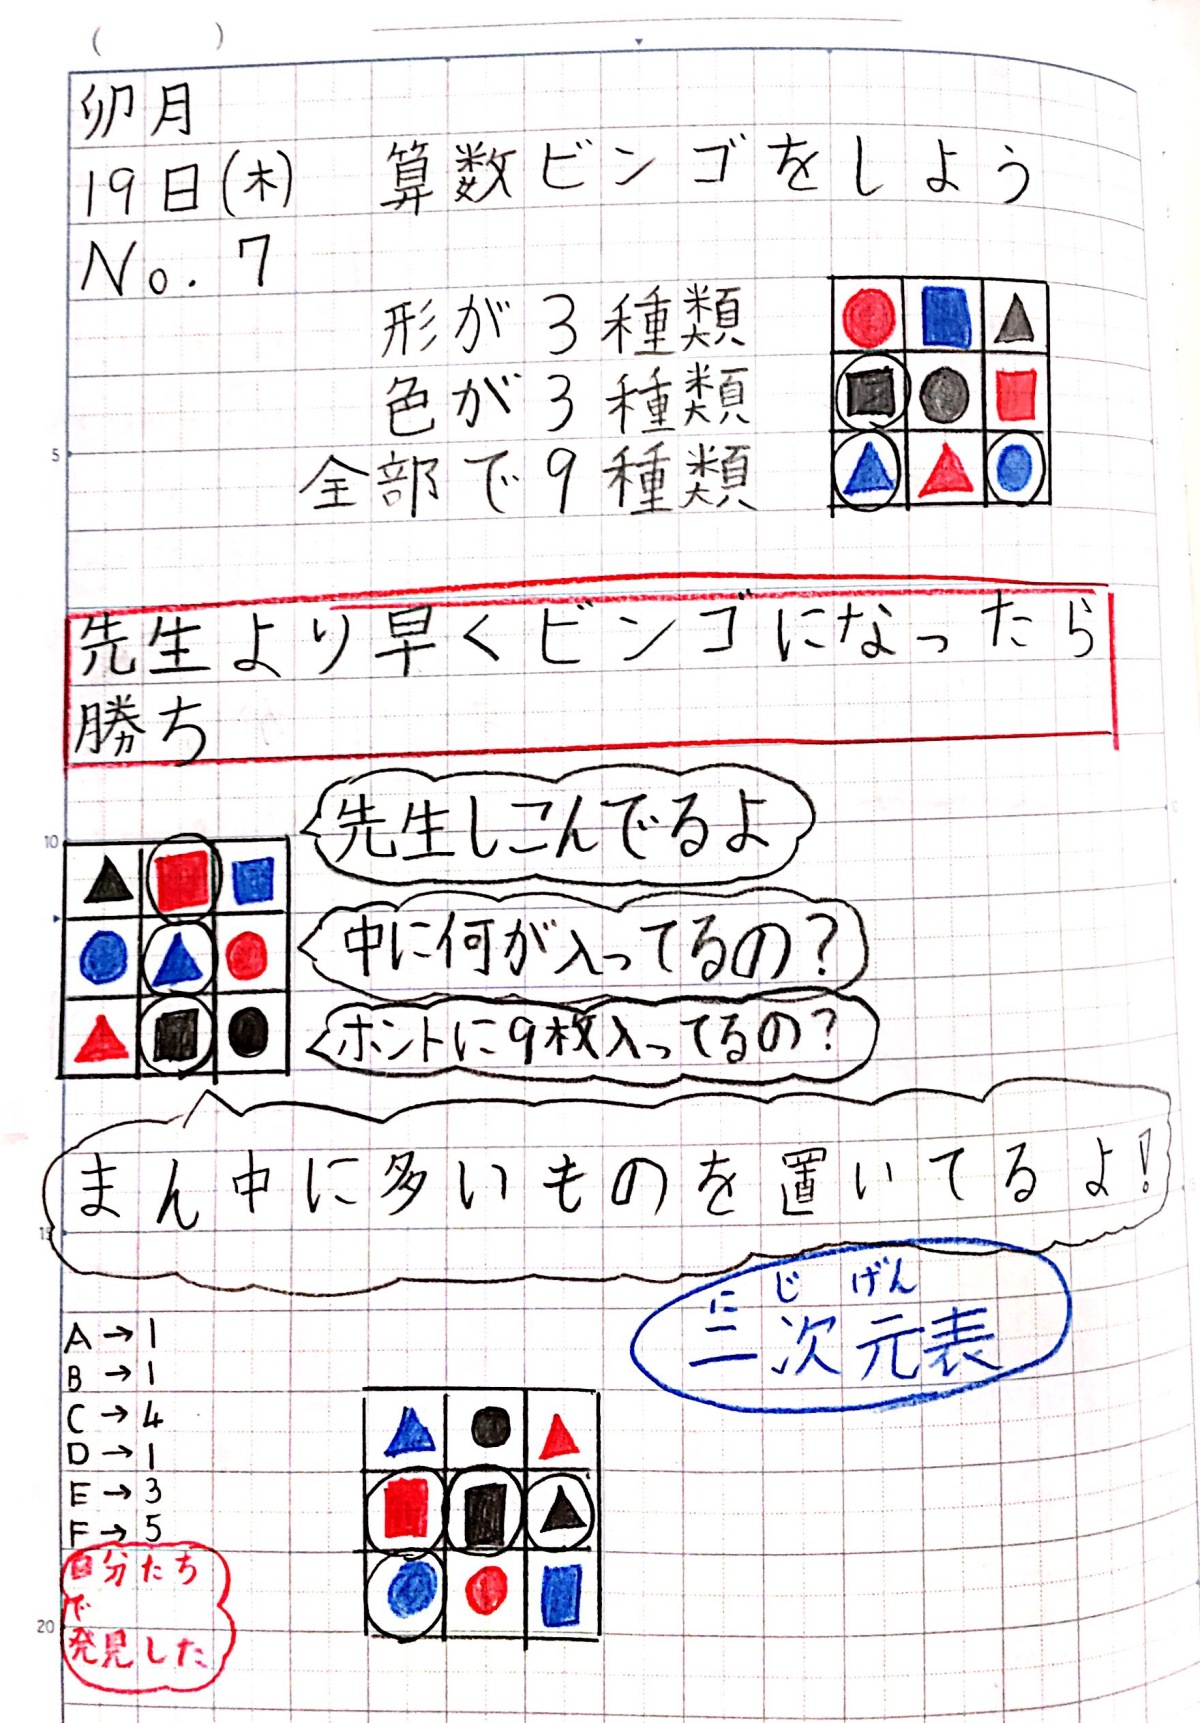 ( )
卯月
19日(木) 算数ビンゴをしよう
No. 7
形が3種類
色が3種類
5
全部で9種類
先生より早くビンゴになったら
勝ち
先生しこんでるよ
10
中に何が入ってるの?
ホントに9枚入ってるの?
まん中に多いものを置いてるよ!
15
に じ げん
二次元表
A→1
B→1
C→4
D→1
E→3
F→5
自分たち
で
発見した
20